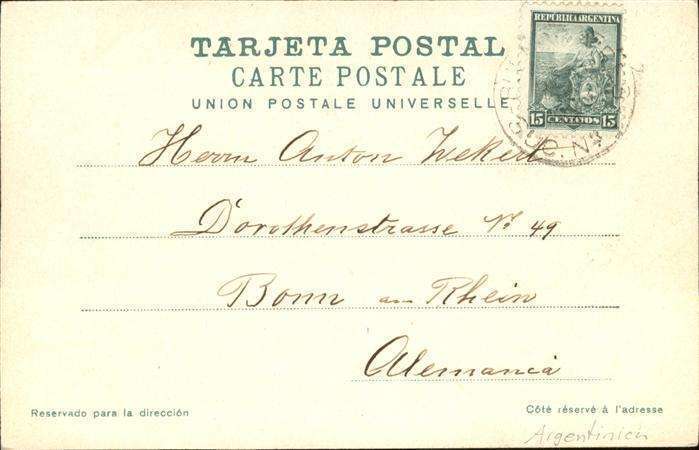 TARJETA POSTAL
CARTE POSTALE
UNION POSTALE UNIVERSELLE
REPÚBLICA ARGENTINA
15 CENTAVOS 15
SUC. Nº
Herrn Anton Wekerl
Dorothenstrasse No 49
Bonn am Rhein
Alemania
Reservado para la dirección
Côté réservé à l'adresse
Argentinien